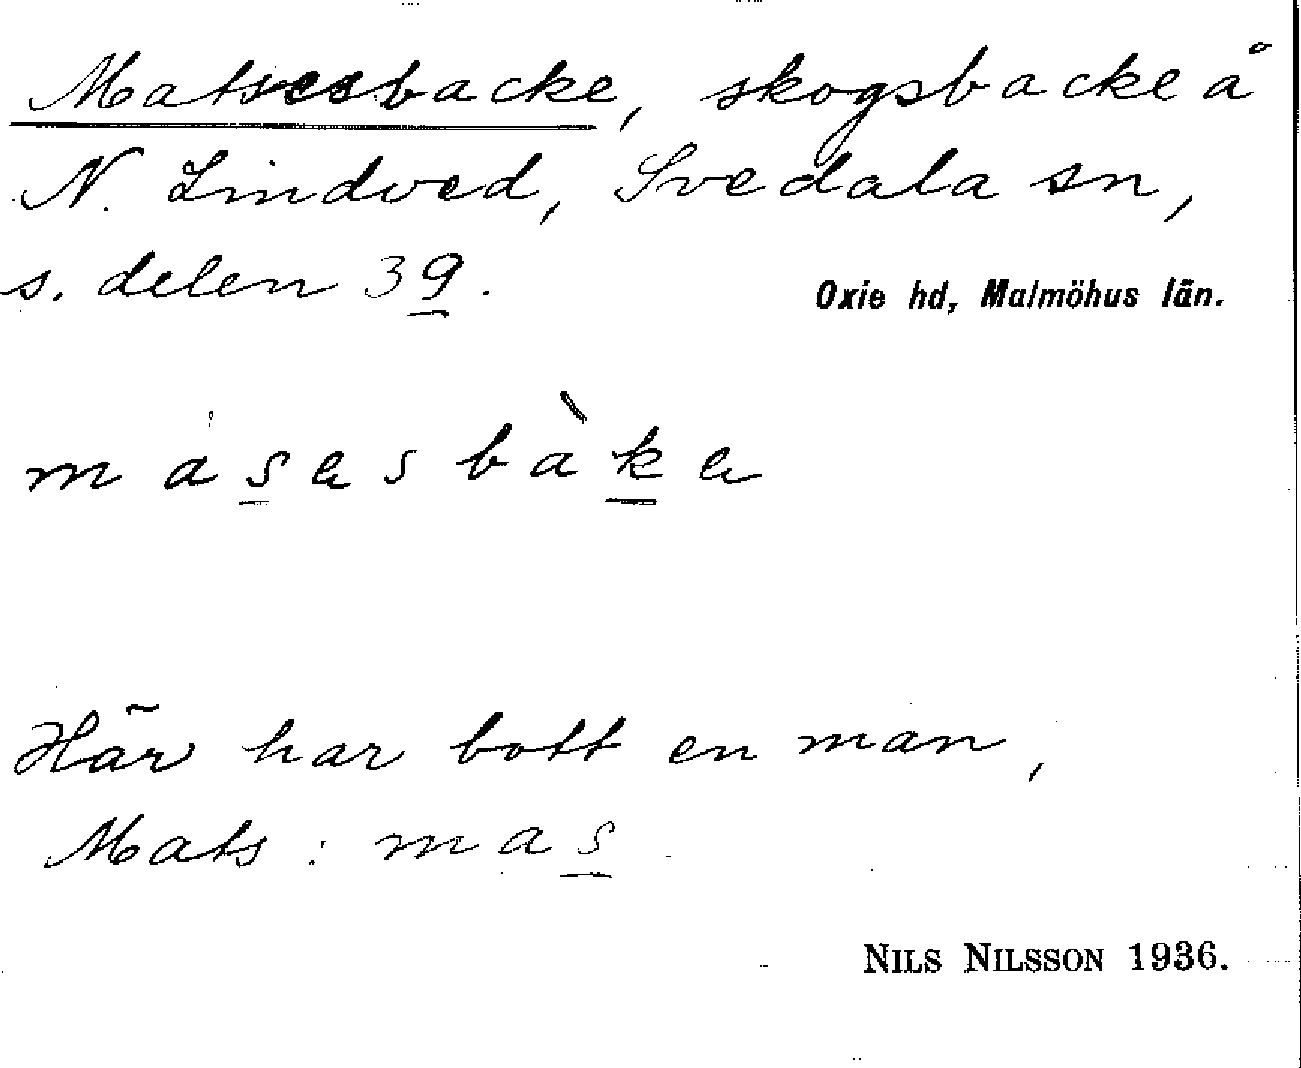 Matsesbacke, skogsbacke å
N. Lindved, Svedala sn,
s. delen 39.
Oxie hd, Malmöhus län.
màsasbàka
Här har bott en man,
Mats: mas
NILS NILSSON 1936.